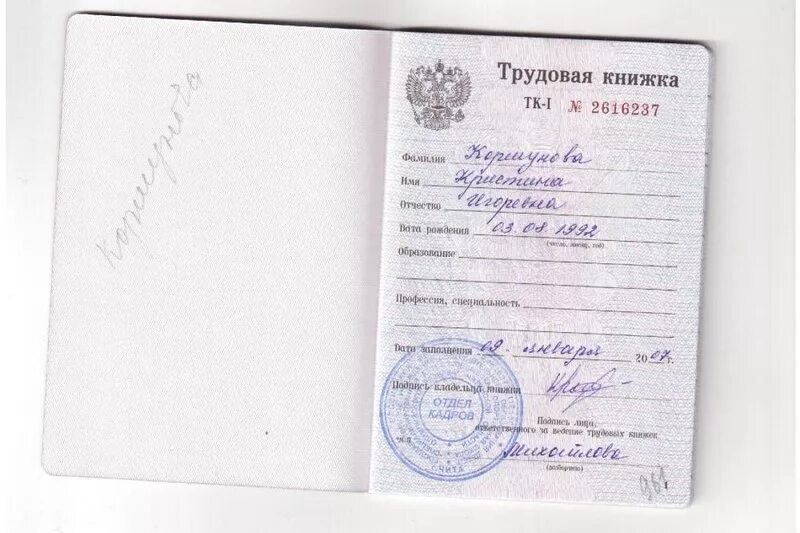 Коршунова
Трудовая книжка
ТК-I № 2616237
Фамилия Коршунова
Имя Кристина
Отчество Игоревна
Дата рождения 03.08.1992
(число, месяц, год)
Образование
Профессия, специальность
Дата заполнения 09 января 2007 г.
Подпись владельца книжки
Подпись лица,
ответственного за ведение трудовых книжек
М.П. Михайлова
(разборчиво)
ОТДЕЛ
КАДРОВ
Г. ЧИТА